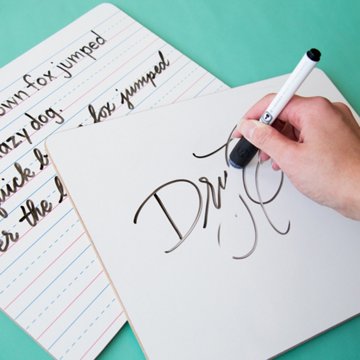 own fox jumped
azy dog.
quick b fox jumped
er the l